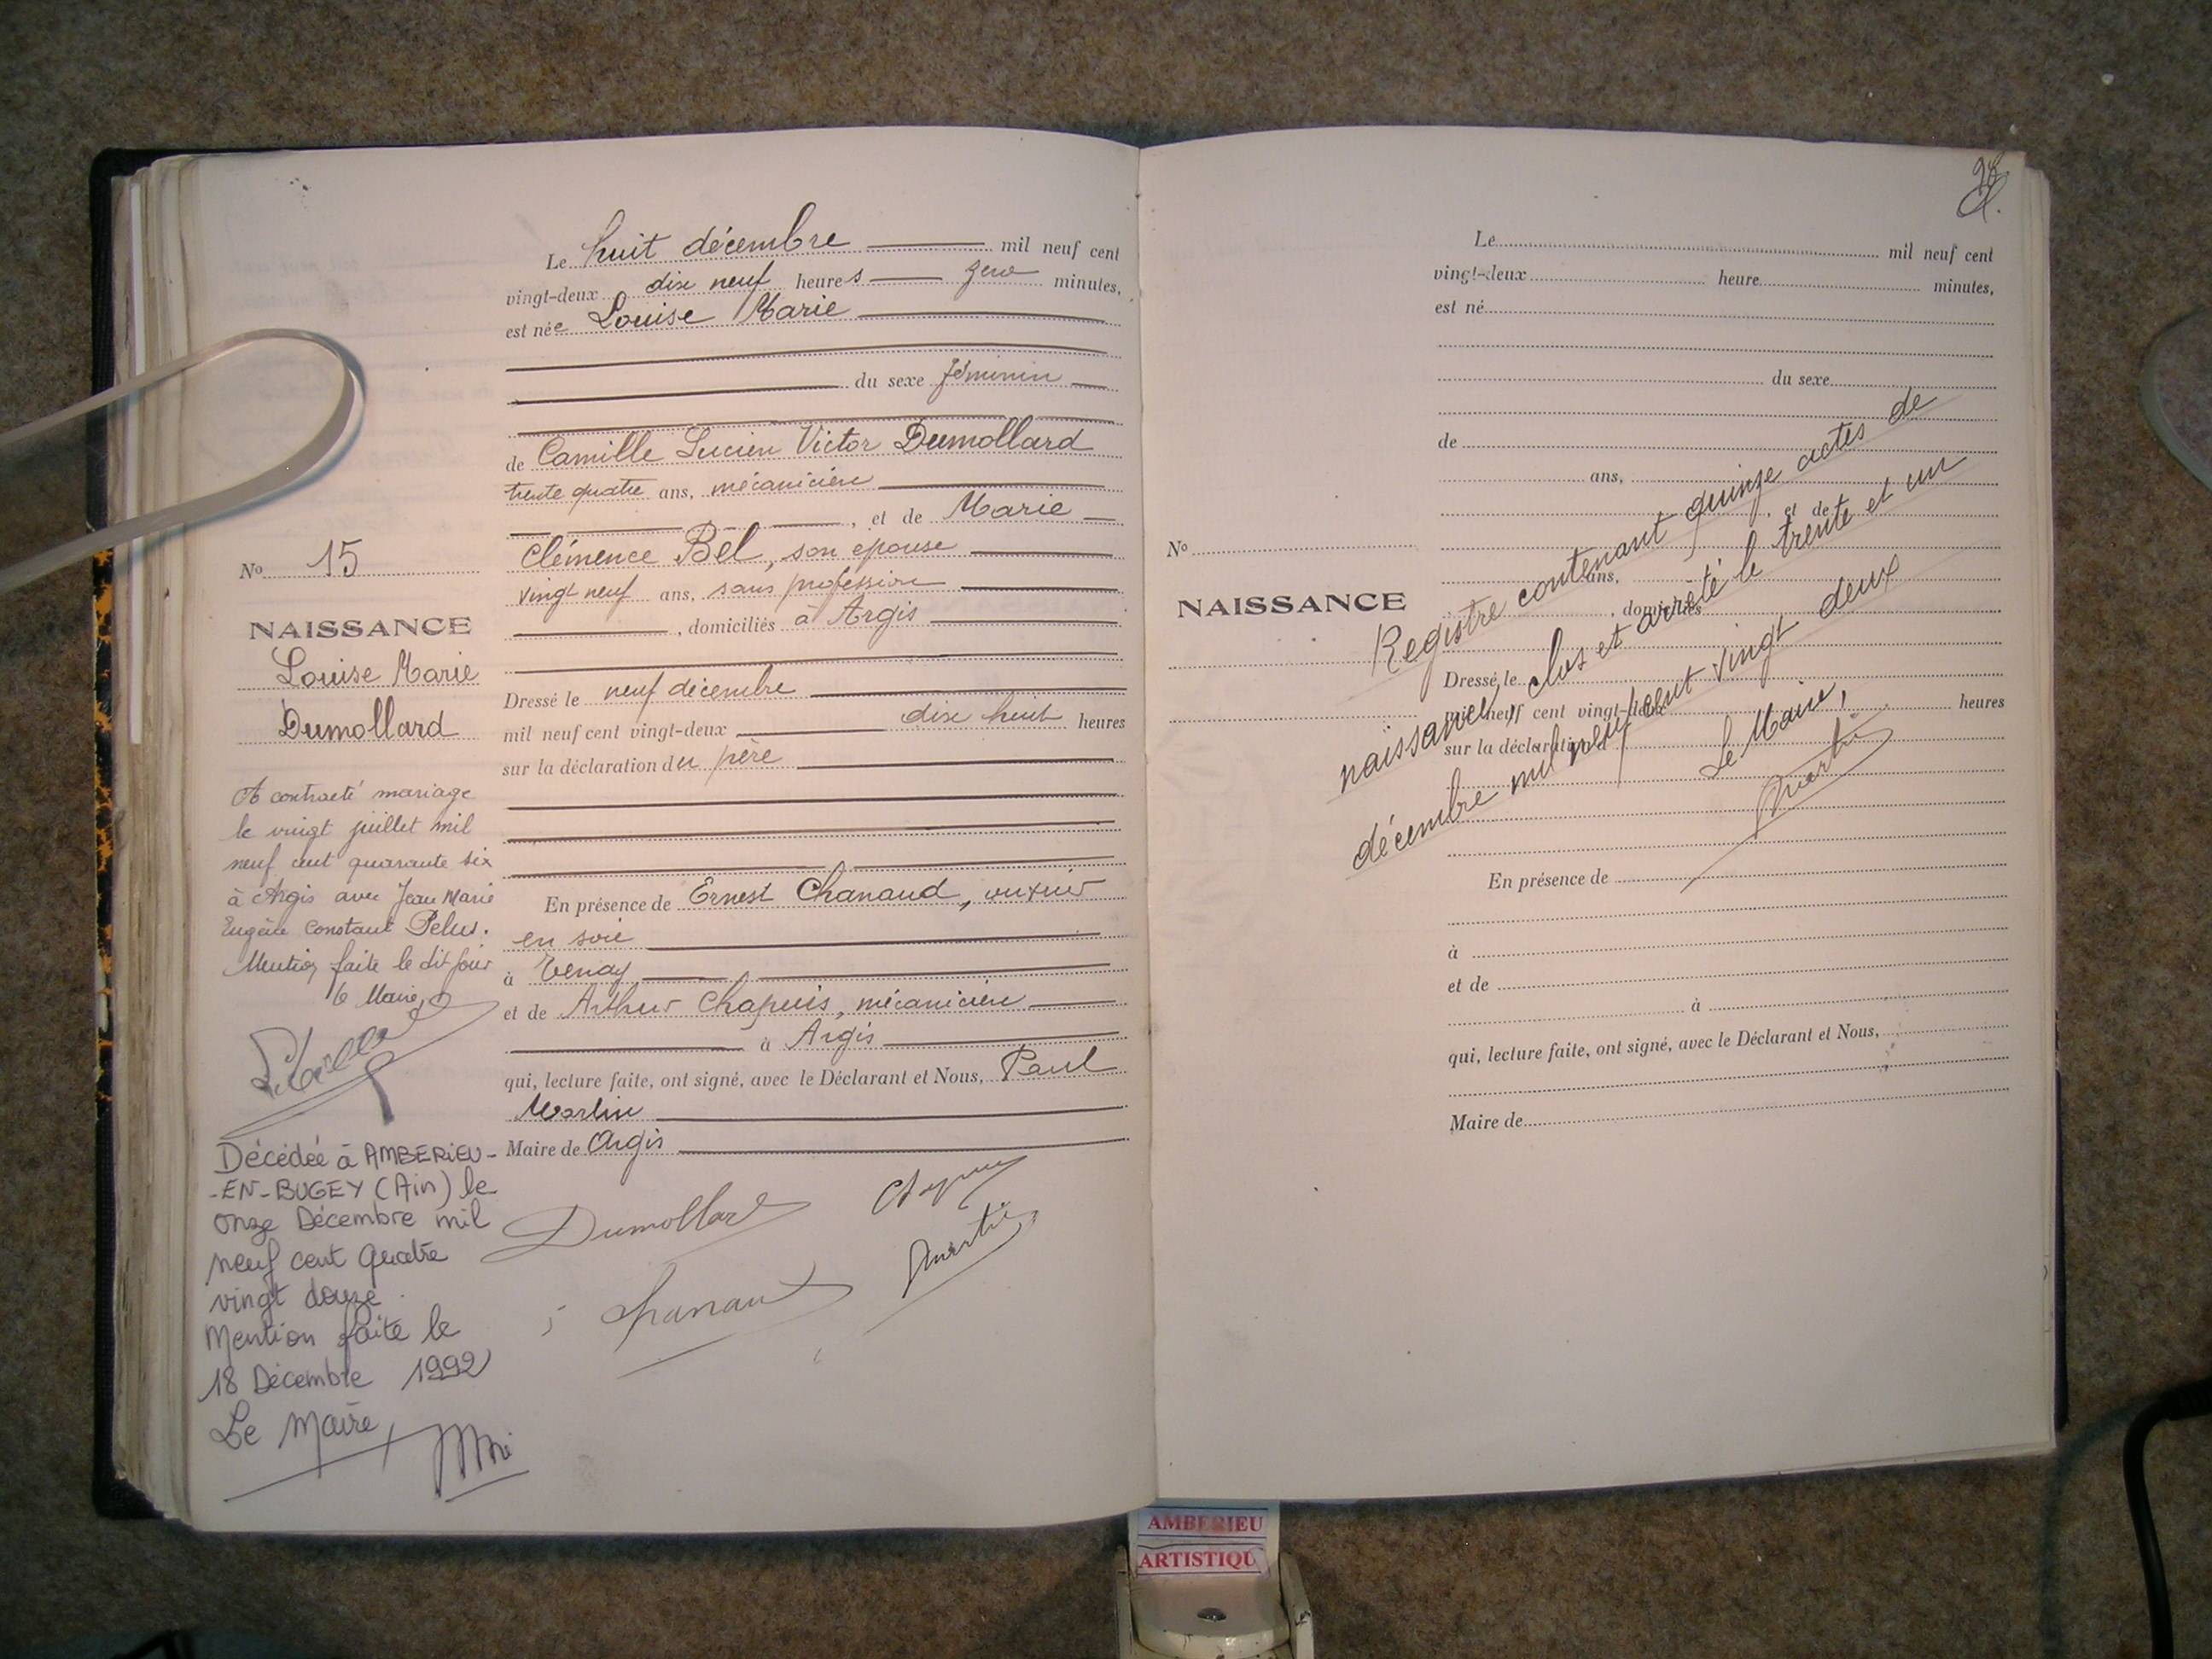 Le huit décembre mil neuf cent
vingt-deux dix neuf heures zero minutes,
est née Louise Marie
du sexe féminin
de Camille Lucien Victor Dumollard
trente quatre ans, mécanicien
, et de Marie
Clémence Bel, son épouse
vingt neuf ans, sans profession
, domiciliés à Argis
Dressé le neuf décembre
mil neuf cent vingt-deux dix huit heures
sur la déclaration du père
En présence de Ernest Chanaud, ouvrier
en soie
à Tenay
et de Arthur Chapuis, mécanicien
à Argis
qui, lecture faite, ont signé, avec le Déclarant et Nous, Paul
Martin
Maire de Argis
Dumollard
Chanaud
Martin
No 15
NAISSANCE
Louise Marie
Dumollard
A contracté mariage
le vingt juillet mil
neuf cent quarante six
à Argis avec Jean Marie
Eugène Constant Pelus.
Mention faite le dit jour
le Maire,
Décédée à AMBERIEU-
-EN-BUGEY (Ain) le
onze Décembre mil
neuf cent quatre
vingt douze.
Mention faite le
18 Décembre 1992
Le Maire,
Le mil neuf cent
vingt-deux heure minutes,
est né
du sexe
de
ans,
, et de
No
ans,
NAISSANCE
, domiciliés
Dressé le
mil neuf cent vingt-deux heures
sur la déclaration d
En présence de
à
et de
à
qui, lecture faite, ont signé, avec le Déclarant et Nous,
Maire de
Registre contenant quinze actes de
naissance, clos et arrêté le trente et un
décembre mil neuf cent vingt deux
Le Maire,
Martin
AMBERIEU
ARTISTIQU